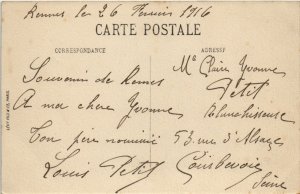 Rennes le 26 Fevrier 1916
CARTE POSTALE
CORRESPONDANCE
ADRESSE
Souvenir de Rennes
A ma chere Yvonne
Ton père
Louis Petit
Mlle Claire Yvonne
Petit
Blanchisseuse
53 rue d'Alsace
Courbevoie
Seine